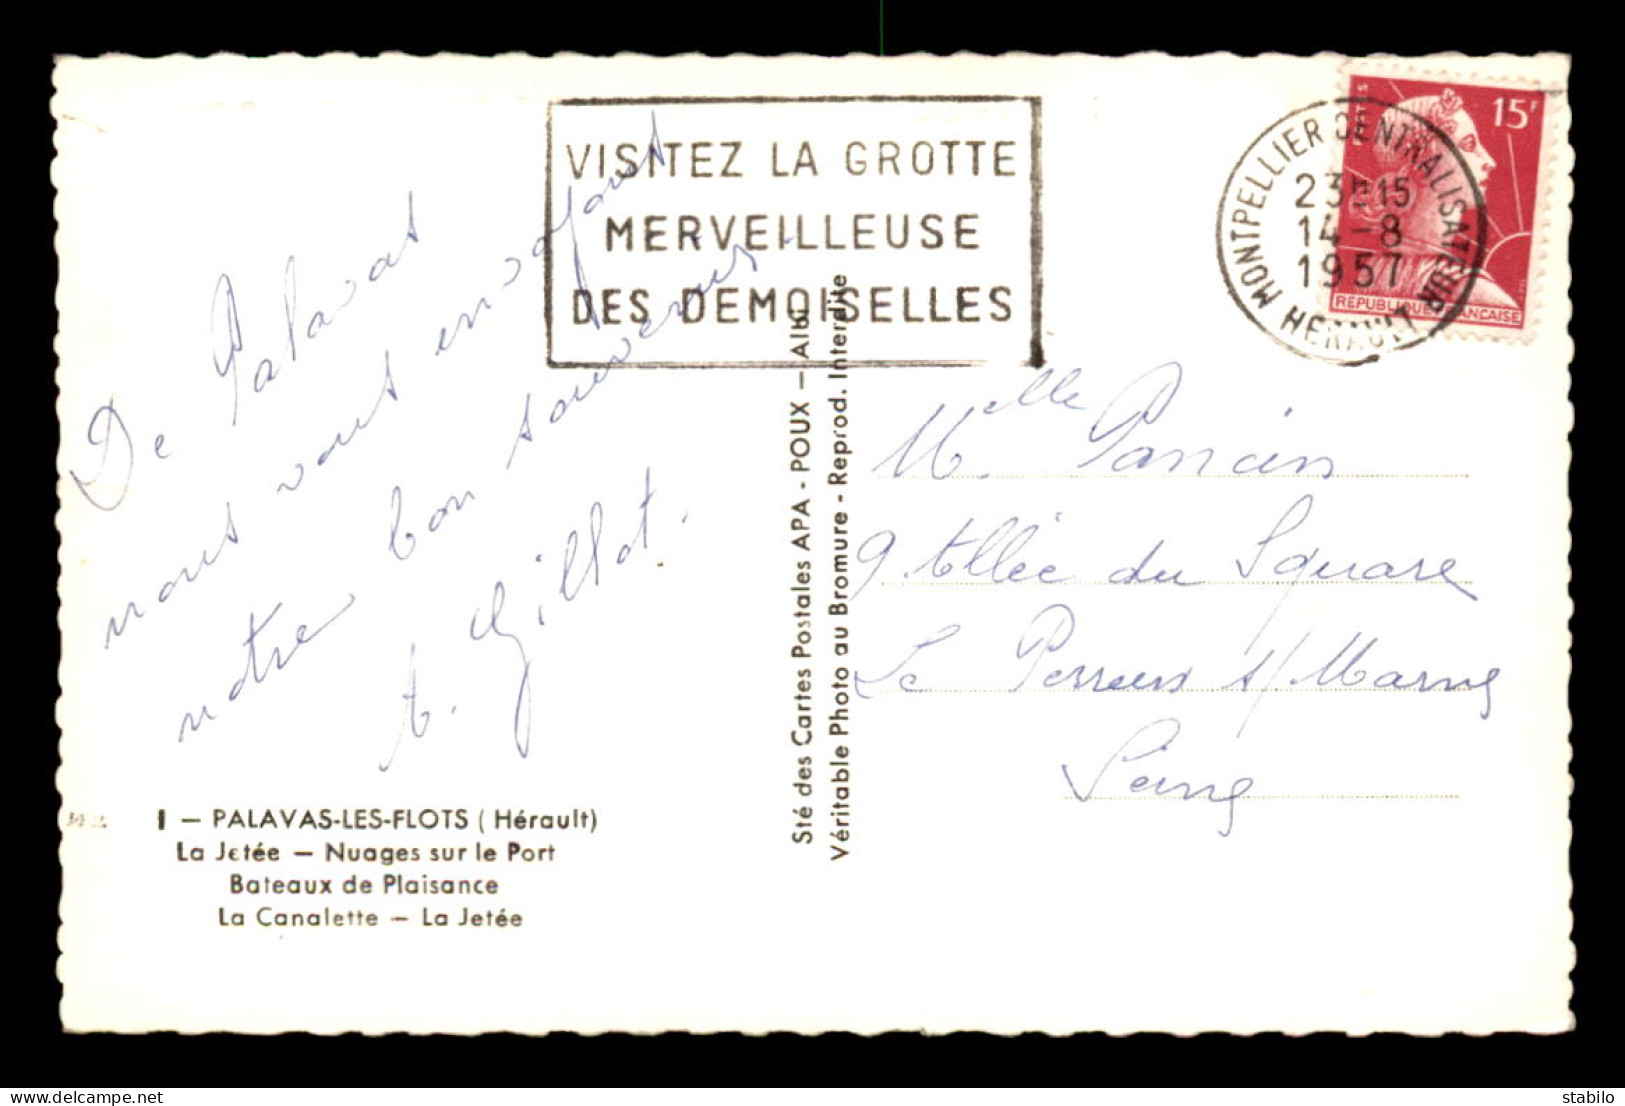 VISITEZ LA GROTTE
MERVEILLEUSE
DES DEMOISELLES
MONTPELLIER CENTRALISATEUR
23H15
14-8
1957
HERAULT
15F
POSTES
REPUBLIQUE FRANCAISE
De Palavas
nous vous envoyons
notre bon souvenir.
A. Gillot.
Sté des Cartes Postales APA - POUX — Albi
Véritable Photo au Bromure - Reprod. Interdite
Melle
9 Allée du Square
Le Perreux s/Marne
Seine
1 — PALAVAS-LES-FLOTS (Hérault)
La Jetée — Nuages sur le Port
Bateaux de Plaisance
La Canalette — La Jetée
delcampe.net
stabilo